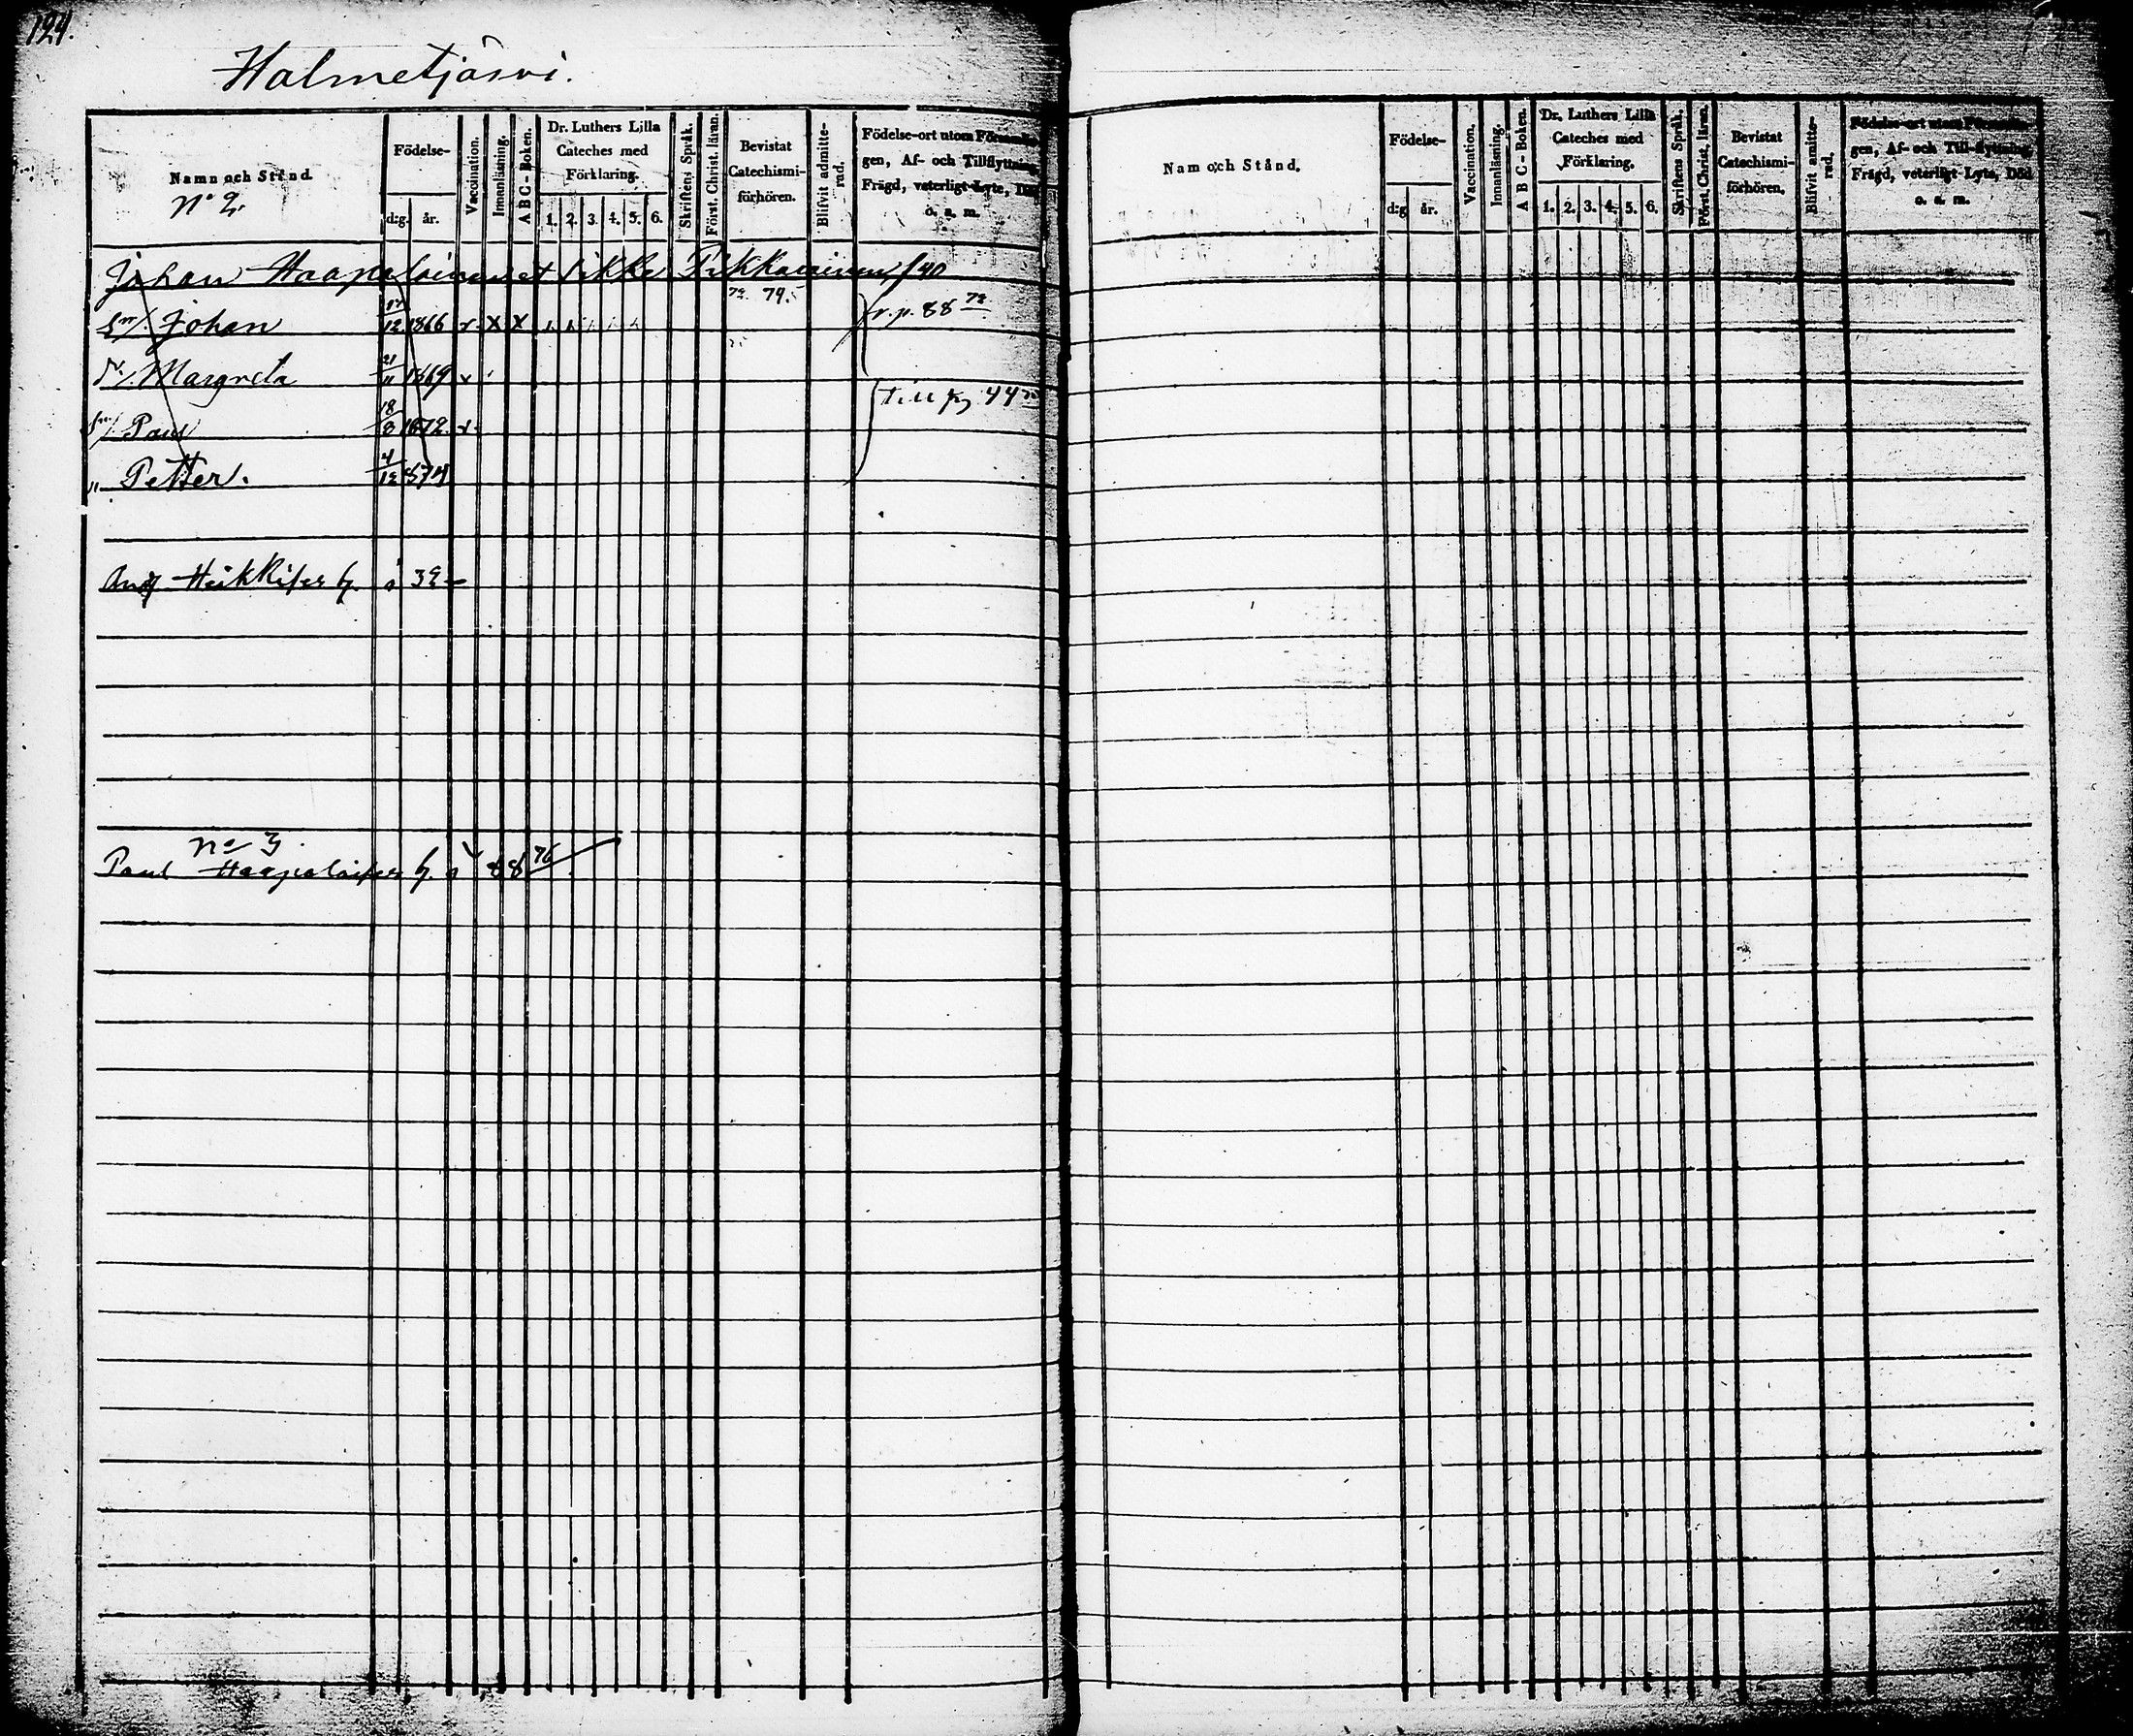 124.
Halmetjärvi.
Namn och Stånd
Nº 2.
Födelse-
d:g. år.
Vaccination.
Innanläsning.
A B C - Boken.
Dr. Luthers Lilla
Cateches med
Förklaring.
1. 2. 3. 4. 5. 6.
Skriftens Språk.
Först. Christ. läran.
Bevistat
Catechismi-
förhören.
Blifvit admitte-
rad.
Födelse-ort utom Församlin-
gen, Af- och Tillflyttning,
Frägd, veterligt Lyte, Död
o. a. m.
Johan
72. 79.
Sn/. Johan 1866 x x x fr. p. 88 72
Dr/. Margreta 21/11 1869 x
till pg 44
Sn/ Paul 18/8 1872. x
" Petter. 4/12 1874
And. Heikkises h. å 39
Nº 3.
Paul Haapalaises h. å 88 76
Nam och Stånd.
Födelse-
d:g år.
Vaccination.
Innanläsning.
A B C - Boken.
Dr. Luthers Lilla
Cateches med
Förklaring.
1. 2. 3. 4. 5. 6.
Skriftens Språk.
Först. Christ. läran.
Bevistat
Catechismi-
förhören.
Blifvit amitte-
rad.
Födelse-ort utom Församlin-
gen, Af- och Till-flyttning,
Frägd, veterligt Lyte, Död
o. a. m.